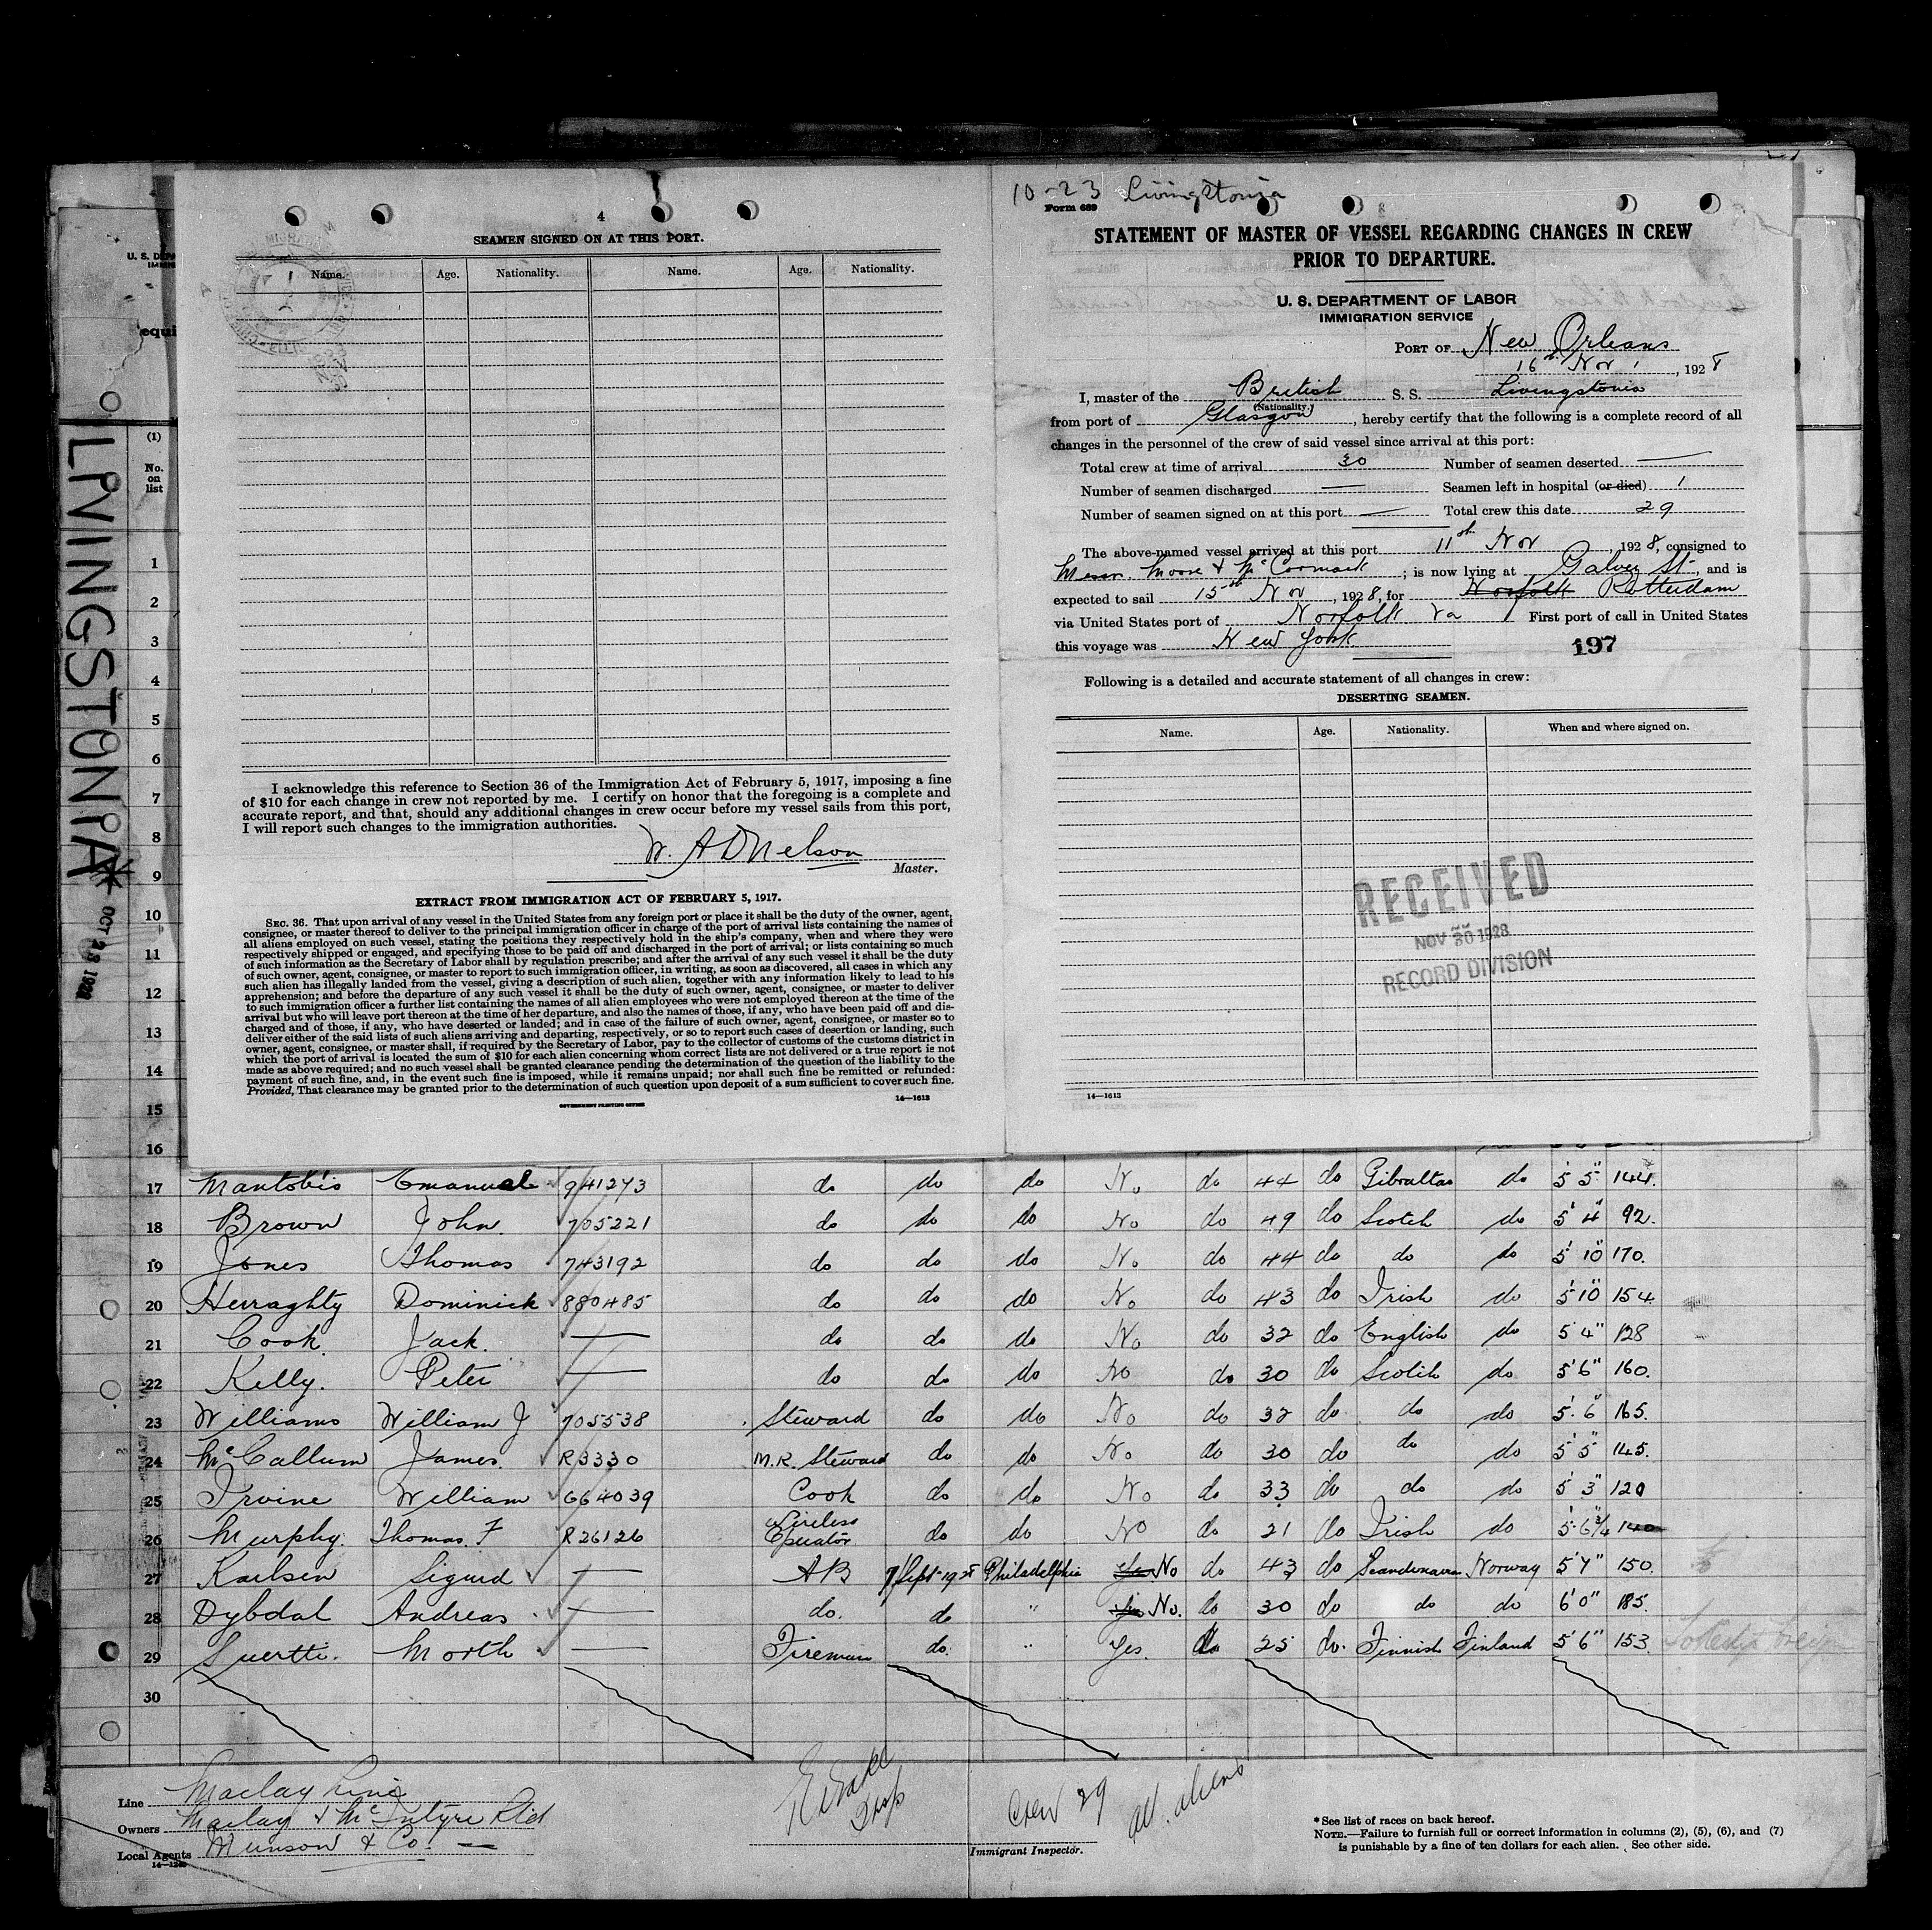 4
SEAMEN SIGNED ON AT THIS PORT.
Name. Age. Nationality. Name. Age. Nationality.
I acknowledge this reference to Section 36 of the Immigration Act of February 5, 1917, imposing a fine
of $10 for each change in crew not reported by me. I certify on honor that the foregoing is a complete and
accurate report, and that, should any additional changes in crew occur before my vessel sails from this port,
I will report such changes to the immigration authorities.
W. A D Nelson
Master.
EXTRACT FROM IMMIGRATION ACT OF FEBRUARY 5, 1917.
SEC. 36. That upon arrival of any vessel in the United States from any foreign port or place it shall be the duty of the owner, agent,
consignee, or master thereof to deliver to the principal immigration officer in charge of the port of arrival lists containing the names of
all aliens employed on such vessel, stating the positions they respectively hold in the ship's company, when and where they were
respectively shipped or engaged, and specifying those to be paid off and discharged in the port of arrival; or lists containing so much
of such information as the Secretary of Labor shall by regulation prescribe; and after the arrival of any such vessel it shall be the duty
of such owner, agent, consignee, or master to report to such immigration officer, in writing, as soon as discovered, all cases in which any
such alien has illegally landed from the vessel, giving a description of such alien, together with any information likely to lead to his
apprehension; and before the departure of any such vessel it shall be the duty of such owner, agent, consignee, or master to deliver
to such immigration officer a further list containing the names of all alien employees who were not employed thereon at the time of the
arrival but who will leave port thereon at the time of her departure, and also the names of those, if any, who have been paid off and dis-
charged and of those, if any, who have deserted or landed; and in case of the failure of such owner, agent, consignee, or master so to
deliver either of the said lists of such aliens arriving and departing, respectively, or so to report such cases of desertion or landing, such
owner, agent, consignee, or master shall, if required by the Secretary of Labor, pay to the collector of customs of the customs district in
which the port of arrival is located the sum of $10 for each alien concerning whom correct lists are not delivered or a true report is not
made as above required; and no such vessel shall be granted clearance pending the determination of the question of the liability to the
payment of such fine, and, in the event such fine is imposed, while it remains unpaid; nor shall such fine be remitted or refunded:
Provided, That clearance may be granted prior to the determination of such question upon deposit of a sum sufficient to cover such fine.
GOVERNMENT PRINTING OFFICE
14—1613
10-23 Livingstonia
Form 689
STATEMENT OF MASTER OF VESSEL REGARDING CHANGES IN CREW
PRIOR TO DEPARTURE.
U. S. DEPARTMENT OF LABOR
IMMIGRATION SERVICE
PORT OF New Orleans
16th Nov, 1928
I, master of the British S. S. Livingstonia
(Nationality.)
from port of Glasgow, hereby certify that the following is a complete record of all
changes in the personnel of the crew of said vessel since arrival at this port:
Total crew at time of arrival 30 Number of seamen deserted —
Number of seamen discharged — Seamen left in hospital (or died) 1
Number of seamen signed on at this port — Total crew this date 29
The above-named vessel arrived at this port 11th Nov, 1928, consigned to
Messrs. Moore & McCormack; is now lying at Galvez St, and is
expected to sail 15th Nov, 1928, for Norfolk Rotterdam
via United States port of Norfolk Va First port of call in United States
this voyage was New York
197
Following is a detailed and accurate statement of all changes in crew:
DESERTING SEAMEN.
Name. Age. Nationality. When and where signed on.
RECEIVED
NOV 30 1928
RECORD DIVISION
14—1613
LIVINGSTONIA
OCT 23 1928
U. S. DEPA
IMMIG
equi
(1)
No.
on
list
1
2
3
4
5
6
7
8
9
10
11
12
13
14
15
16
17 Emanuel 941273 do do do No do 44 do Gibraltar do 5' 5" 144.
18 Brown John 705221 do do do No do 49 do Scotch do 5' 4" 92.
19 Jones Thomas 743192 do do do No do 44 do do do 5' 10 170.
20 Herraghty Dominick 880485 do do do No do 43 do Irish do 5' 10" 154.
21 Cook. Jack. — do do do No do 32 do English do 5' 4" 128
22 Kelly. Peter — do do do No do 30 do Scotch do 5' 6" 160.
23 Williams William J 705538 Steward do do No do 32 do do do 5' 6" 165.
24 McCallum James. R3330 M.R. Steward do do No do 30 do do do 5' 5" 145.
25 Irvine William 664039 Cook do do No do 33 do do do 5' 3" 120
26 Murphy. Thomas. F R26126 Wireless Operator do do No do 21 do Irish do 5' 6 3/4 140
27 Karlsen Sigurd — AB Philadelphia Yes No do 43 do Scandinavian Norway 5' 7" 150.
28 Dybdal Andreas — do. do " Yes No. do 30 do do do 6' 0" 185.
29 — Fireman do. " Yes. do 25 do. Finnish Finland 5' 6" 153
30
Line Maclay Line
Owners Maclay & McIntyre Ltd
Local Agents Munson & Co. —
14—1240
Crew 29
all aliens
Immigrant Inspector.
* See list of races on back hereof.
NOTE.—Failure to furnish full or correct information in columns (2), (5), (6), and (7)
is punishable by a fine of ten dollars for each alien. See other side.